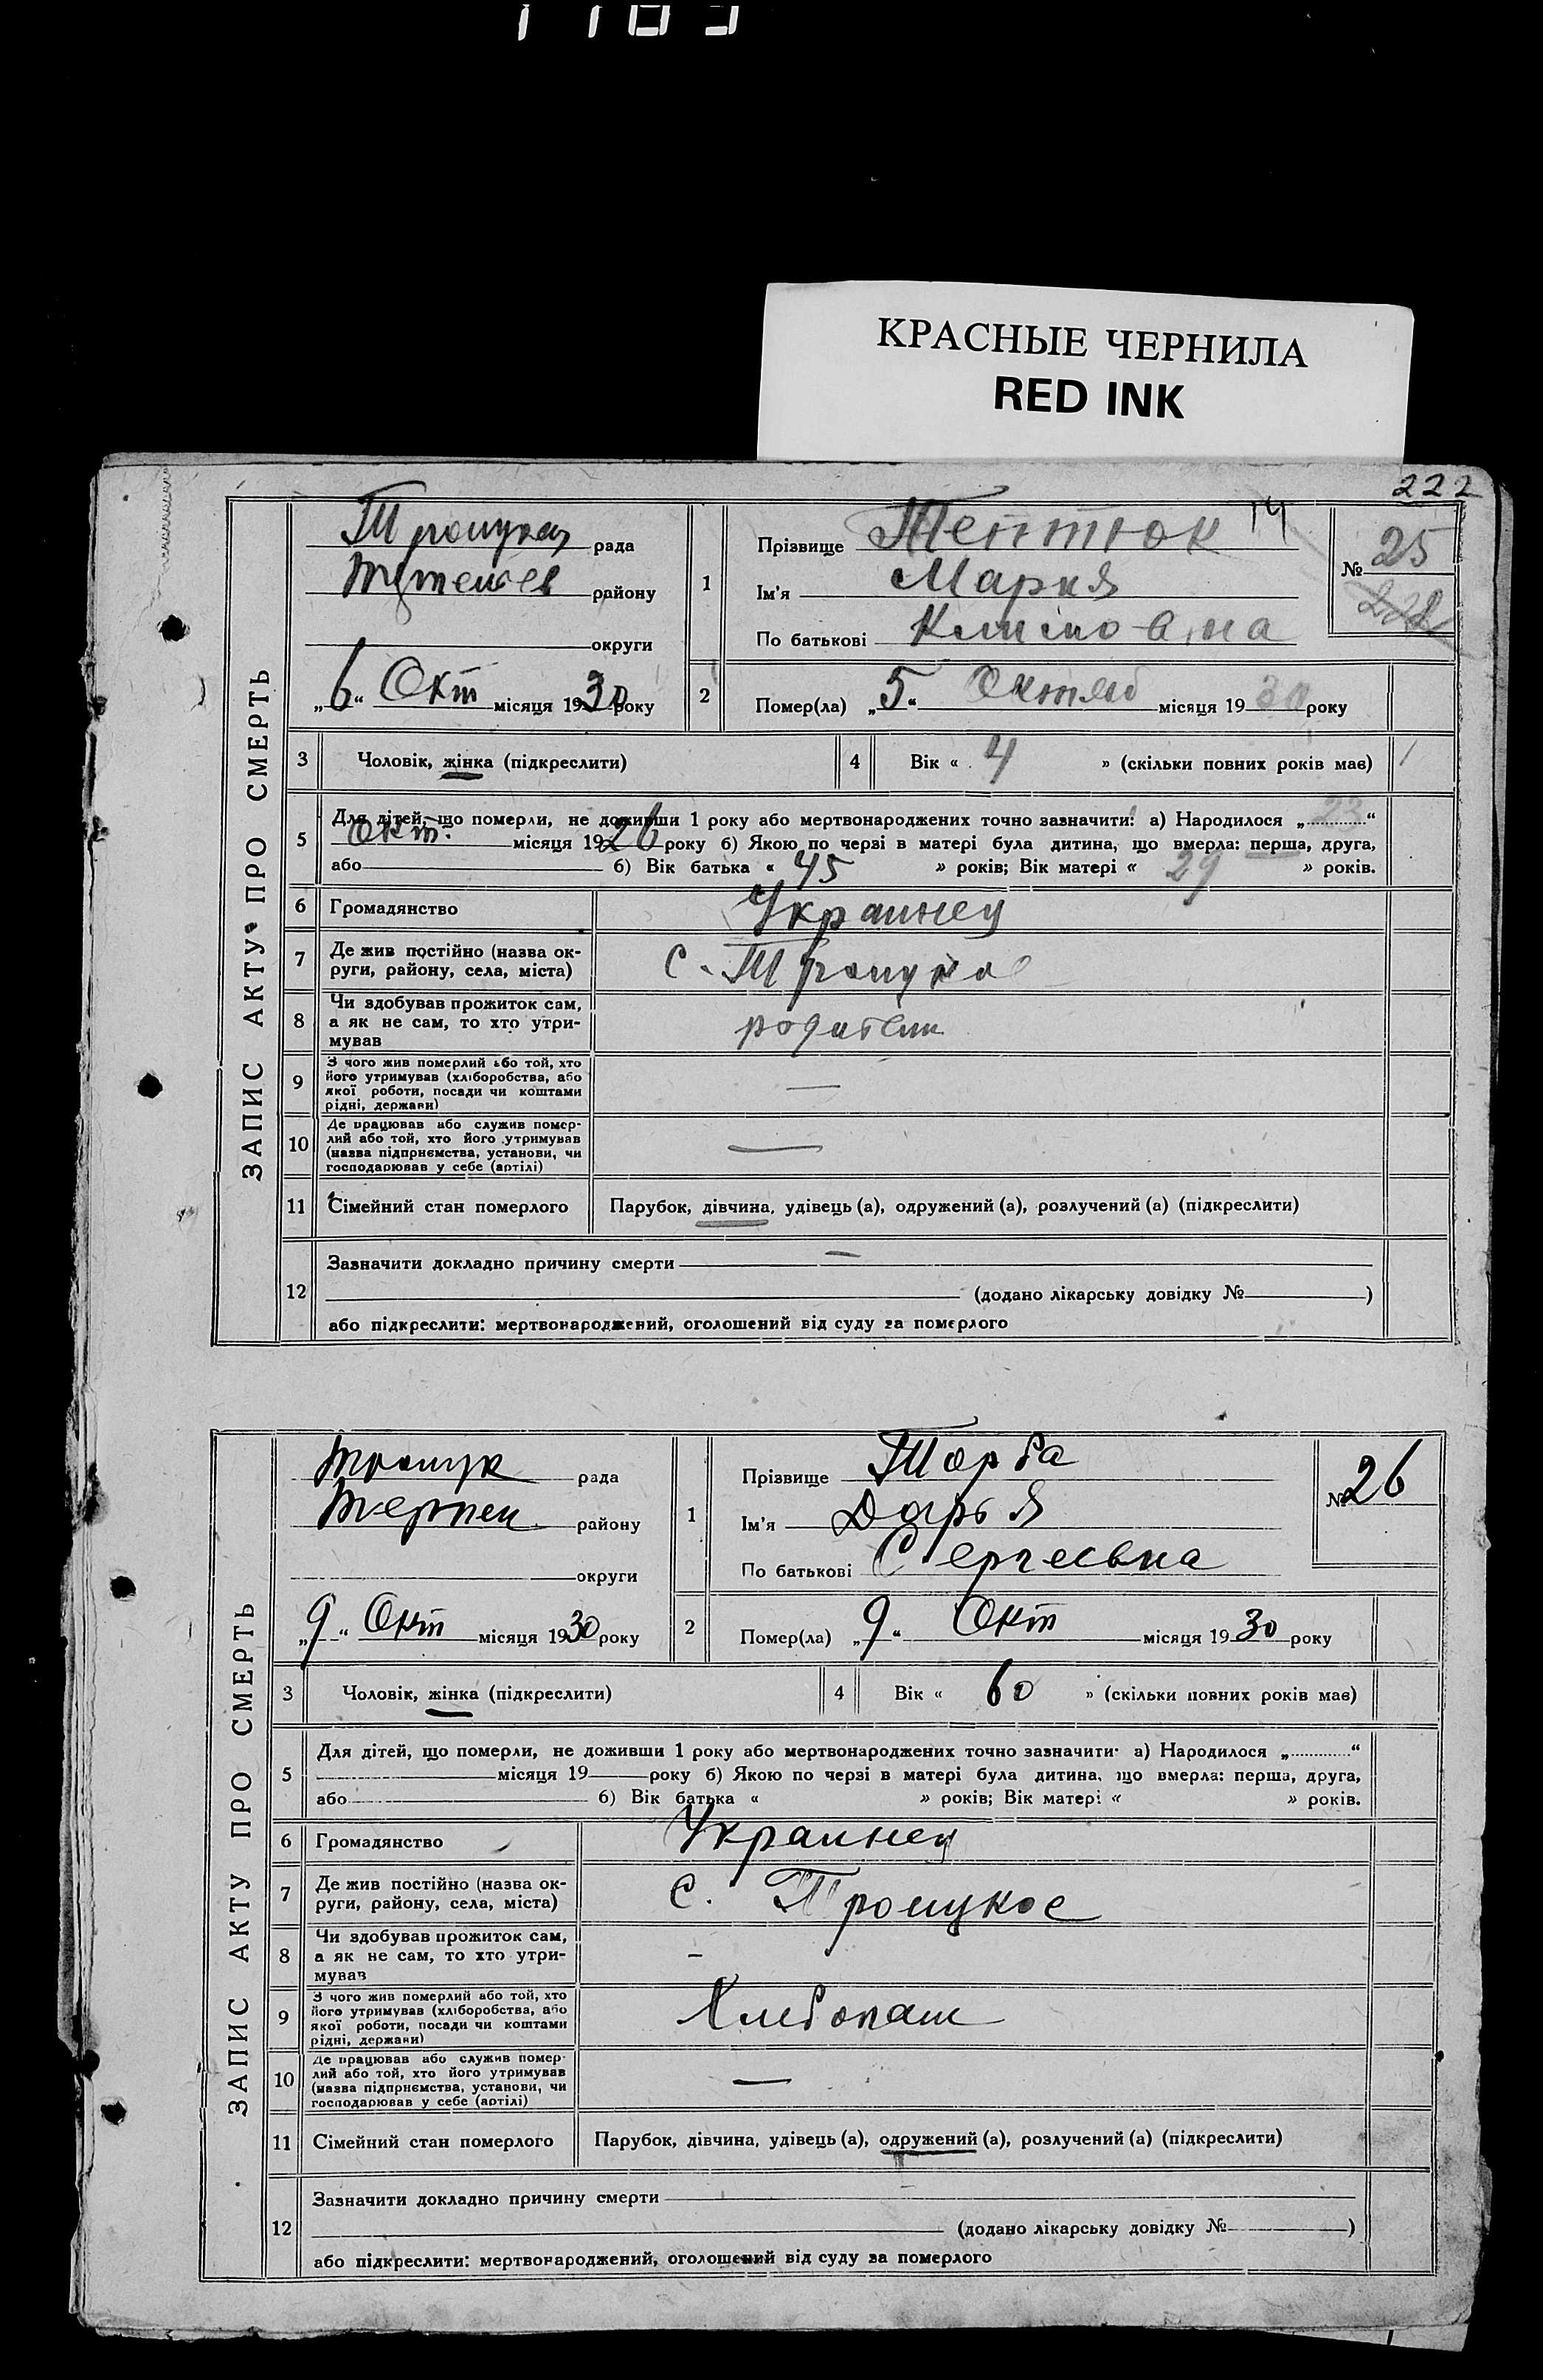 КРАСНЫЕ ЧЕРНИЛА
RED INK
222
ЗАПИС АКТУ ПРО СМЕРТЬ
Троицкая рада
району
округи
„6“ Окт місяця 1930 року
1
Прізвище Тептюк 14
Ім'я Мария
По батькові Климовна
№ 25
222
2
Помер(ла) „5“ Октяб місяця 1930 року
3
Чоловік, жінка (підкреслити)
4
Вік « 4 » (скільки повних років має)
5
Для дітей, що померли, не доживши 1 року або мертвонароджених точно зазначити: а) Народилося „23“
Окт. місяця 1926 року б) Якою по черзі в матері була дитина, що вмерла: перша, друга,
або б) Вік батька « 45 » років; Вік матері « 29 » років.
6
Громадянство
Украинец
7
Де жив постійно (назва ок-
руги, району, села, міста)
с. Троицкое
8
Чи здобував прожиток сам,
а як не сам, то хто утри-
мував
родители
9
З чого жив померлий або той, хто
його утримував (хліборобства, або
якої роботи, посади чи коштами
рідні, держави)
—
10
Де працював або служив помер-
лий або той, хто його утримував
(назва підприємства, установи, чи
господарював у себе (артілі)
—
11
Сімейний стан померлого
Парубок, дівчина, удівець (а), одружений (а), розлучений (а) (підкреслити)
12
Зазначити докладно причину смерти —
(додано лікарську довідку № )
або підкреслити: мертвонароджений, оголошений від суду за померлого
ЗАПИС АКТУ ПРО СМЕРТЬ
Троицк рада
району
округи
„9“ Окт місяця 1930 року
1
Прізвище Торба
Ім'я Дарья
По батькові Сергеевна
№ 26
2
Помер(ла) „9“ Окт місяця 1930 року
3
Чоловік, жінка (підкреслити)
4
Вік « 60 » (скільки повних років має)
5
Для дітей, що померли, не доживши 1 року або мертвонароджених точно зазначити: а) Народилося „ “
місяця 19 року б) Якою по черзі в матері була дитина, що вмерла: перша, друга,
або б) Вік батька « » років; Вік матері « » років.
6
Громадянство
Украинец
7
Де жив постійно (назва ок-
руги, району, села, міста)
с. Троицкое
8
Чи здобував прожиток сам,
а як не сам, то хто утри-
мував
–
9
З чого жив померлий або той, хто
його утримував (хліборобства, або
якої роботи, посади чи коштами
рідні, держави)
Хлебопаш
10
Де працював або служив помер-
лий або той, хто його утримував
(назва підприємства, установи, чи
господарював у себе (артілі)
—
11
Сімейний стан померлого
Парубок, дівчина, удівець (а), одружений (а), розлучений (а) (підкреслити)
12
Зазначити докладно причину смерти
(додано лікарську довідку № )
або підкреслити: мертвонароджений, оголошений від суду за померлого